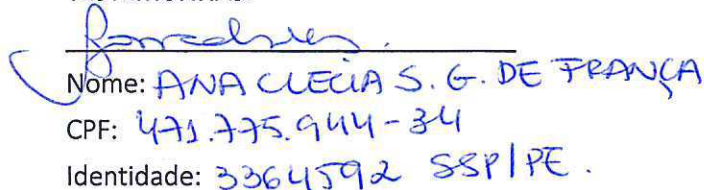 Nome: ANA CLECIA S. G. DE FRANÇA
CPF: 471.775.944-34
Identidade: 3364592 SSP/PE.